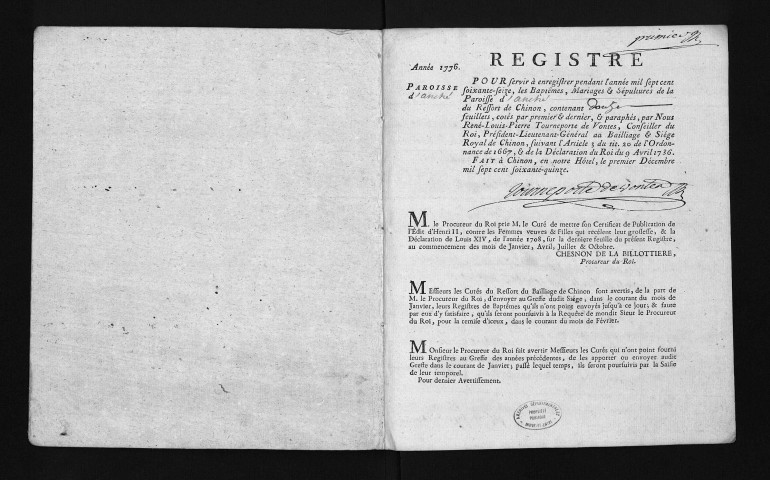 premier
REGISTRE
Année 1776.
PAROISSE
d'anché
POUR servir à enregistrer pendant l'année mil sept cent
soixante-seize, les Baptêmes, Mariages & Sépultures de la
Paroisse d'anché
du Ressort de Chinon, contenant douze
feuillets, cotés par premier & dernier, & paraphés, par Nous
René-Louis-Pierre Tourneporte de Vontes, Conseiller du
Roi, Président-Lieutenant-Général au Bailliage & Siége
Royal de Chinon, suivant l'Article 3 du tit. 20 de l'Ordon-
nance de 1667, & de la Déclaration du Roi du 9 Avril 1736.
FAIT à Chinon, en notre Hôtel, le premier Décembre
mil sept cent soixante-quinze.
Tourneporte de vontes
M. le Procureur du Roi prie M. le Curé de mettre son Certificat de Publication de
l'Edit d'Henri II, contre les Femmes veuves & Filles qui recèlent leur grossesse, & la
Déclaration de Louis XIV, de l'année 1708, sur la derniere feuille du présent Registre,
au commencement des mois de Janvier, Avril, Juillet & Octobre.
CHESNON DE LA BILLOTTIERE,
Procureur du Roi.
MEssieurs les Curés du Ressort du Bailliage de Chinon sont avertis, de la part de
M. le Procureur du Roi, d'envoyer au Greffe dudit Siége, dans le courant du mois de
Janvier, leurs Registres de Baptêmes qu'ils n'ont point envoyés jusqu'à ce jour; & faute
par eux d'y satisfaire, qu'ils seront poursuivis à la Requête de mondit Sieur le Procureur
du Roi, pour la remise d'iceux, dans le courant du mois de Février.
MOnsieur le Procureur du Roi fait avertir Messieurs les Curés qui n'ont point fourni
leurs Registres au Greffe des années précédentes, de les apporter ou envoyer audit
Greffe dans le courant de Janvier; passé lequel temps, ils seront poursuivis par la Saisie
de leur temporel.
Pour dernier Avertissement.
ARCHIVES DÉPARTEMENTALES
PROPRIÉTÉ
PUBLIQUE